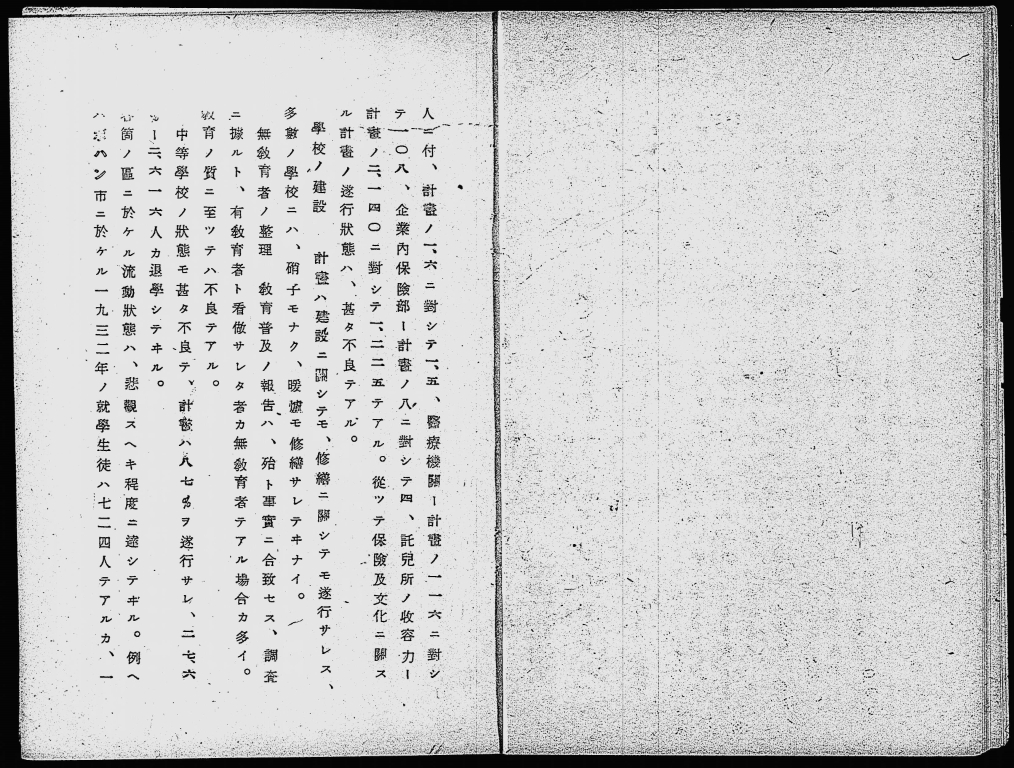 人ニ付、計畫ノ一、六ニ對シテ一、五、醫療機關ー計畫ノ一一六ニ對シ
テ一〇八、企業內保險部ー計畫ノ八ニ對シテ四、託兒所ノ收容力ー
計畫ノ二、一四〇ニ對シテ一、二二五テアル。從ツテ保險及文化ニ關ス
ル計畫ノ遂行狀態ハ、甚タ不良テアル。
學校ノ建設　計畫ハ建設ニ關シテモ、修繕ニ關シテモ遂行サレス、
多數ノ學校ニハ、硝子モナク、暖爐モ修繕サレテヰナイ。
無敎育者ノ整理　敎育普及ノ報吿ハ、殆ト事實ニ合致セス、調査
ニ據ルト、有敎育者ト看做サレタ者カ無敎育者テアル場合カ多イ。
敎育ノ質ニ至ツテハ不良テアル。
中等學校ノ狀態モ甚タ不良テ、計畫ハ八七％ヲ遂行サレ、二七、六
ー二、六一六人カ退學シテヰル。
箇ノ區ニ於ケル流動狀態ハ、悲觀スヘキ程度ニ達シテヰル。例ヘ
ハン市ニ於ケル一九三二年ノ就學生徒ハ七二四人テアルカ、一